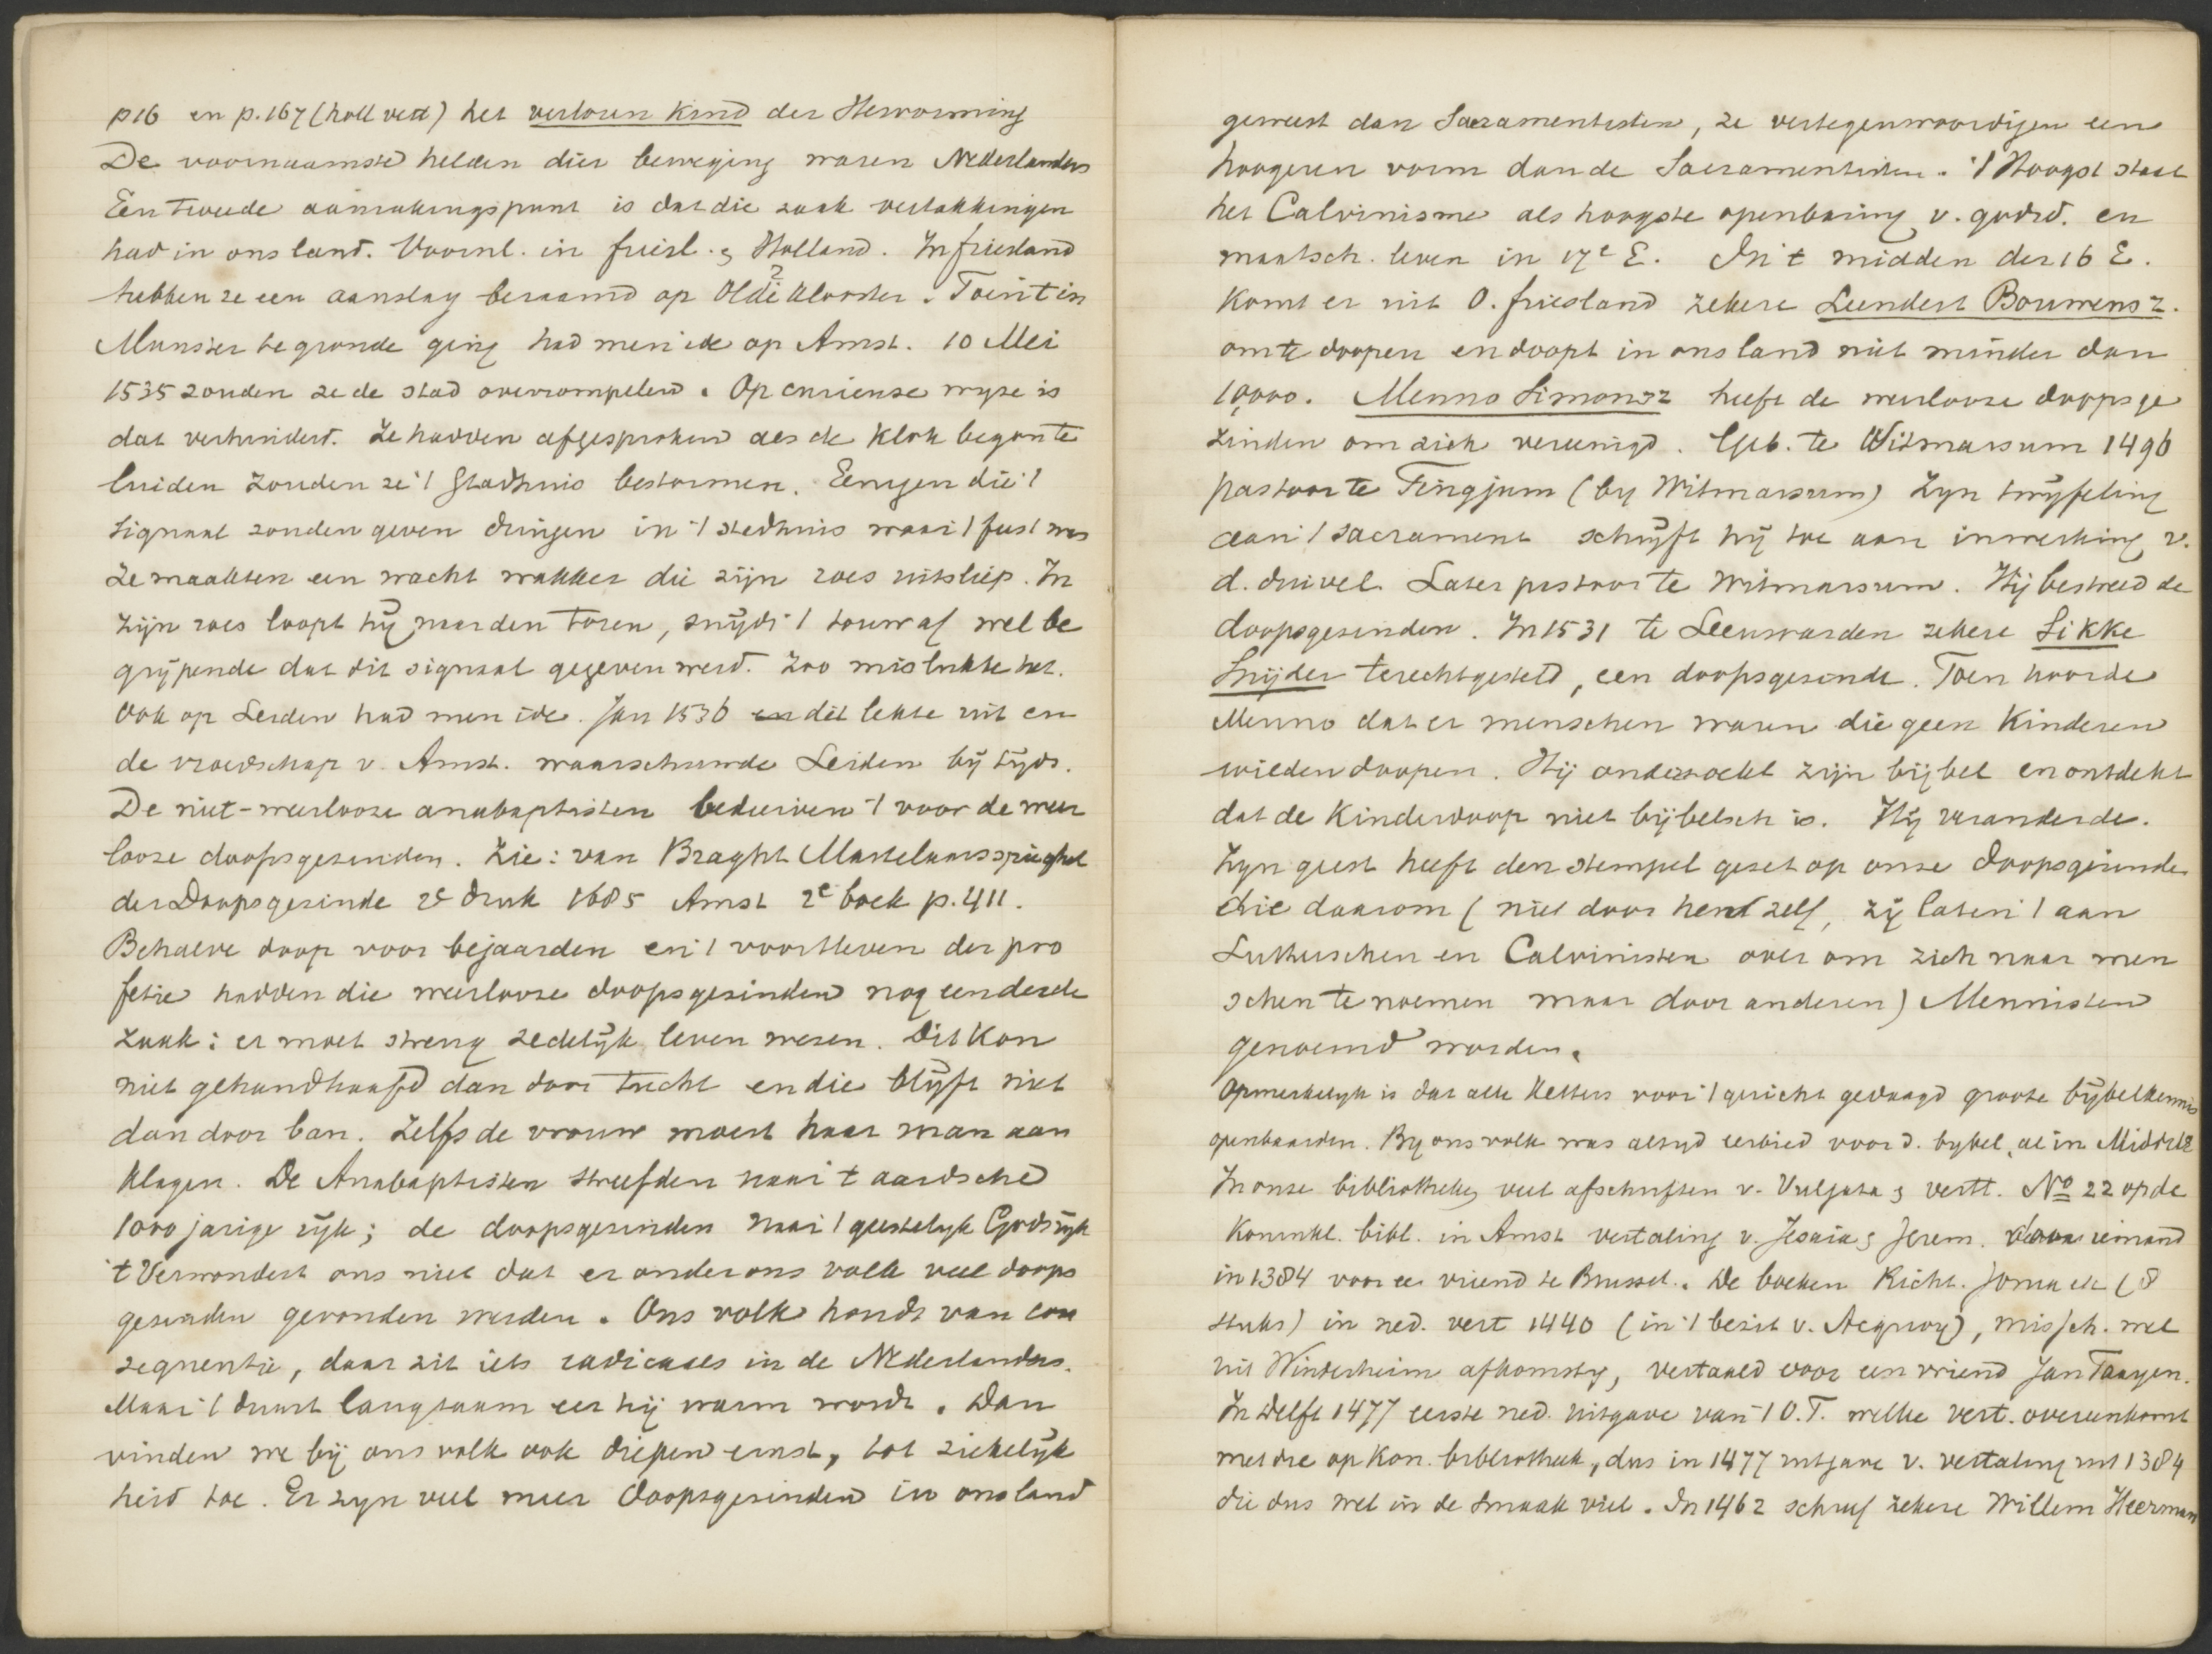 p16 en p.167 (holl vert) het verloren Kind der Hervorming
De voornaamste helden dier beweging waren Nederlanders
Een tweede aanrakingspunt is dat die zaak vertakkingen
had in ons land. Voornl. in friesl. & Holland. In friesland
hebben ze een aanslag beraamd op Olde Klooster. Toen 't in
Munster te gronde ging had men 't ook op Amst. 10 Mei
1535 zouden ze de stad overrompelen. Op curieuse wyze is
dat verhinderd. Ze hadden afgesproken als de Klok begon te
luiden zouden ze 't Stadhuis bestormen. Eenigen die 't
signaal zouden geven dringen in 't stadhuis waar 't feest was
Ze maakten een wacht wakker die zijn roes uitsliep. In
zijn roes loopt hij naar den toren, snijdt 't touw af wel be
grijpende dat dit signaal gegeven werd. Zoo mislukte het.
Ook op Leiden had men 't oe. Jan 1536 en dit lekte uit en
de vroedschap v. Amst. waarschuwde Leiden bij tijds.
De niet-weerlooze anabaptisten bedierven 't voor de weer
looze doopsgezinden. Zie: van Braght Martelaarsspieghel
der Doopsgezinde 2e druk 1685 Amst 2e boek p. 411.
Behalve doop voor bejaarden en 't voortleven der pro
fetie hadden die weerlooze doopsgezinden nog een derde
zaak: er moet streng zedelijk leven wezen. Dit Kon
niet gehandhaafd dan door tucht en die blijft niet
dan door ban. Zelfs de vrouw moest haar man aan
klagen. De Anabaptisten streefden naar 't aardsche
1000 jarige rijk; de doopsgezinden naar 't geestelyk Godsrijk
't Verwondert ons niet dat er onder ons volk veel doops
gezinden gevonden werden. Ons volk houdt van con
sequentie, daar zit iets radicaals in de Nederlanders.
Maar 't duurt langzaam eer hij warm wordt. Dan
vinden we bij ons volk ook diepen ernst, tot ziekelijk
heid toe. Er zyn veel meer doopsgezinden in ons land
geweest dan Sacramentisten, ze vertegenwoordigen een
hoogeren vorm dan de Sacramentisten. 't Hoogst staat
het Calvinisme als hoogste openbaring v. godsd. en
maatsch. leven in 17e E. In 't midden der 16 E.
Komt er uit O. friesland zekere Leendert Bouwensz.
om te doopen en doopt in ons land niet minder dan
10,000. Menno Simonsz heeft de weerlooze doopsge
zinden om zich vereenigd. Geb. te Witmarsum 1496
pastoor te Fingjum (by Witmarsum) Zyn twijfeling
aan 't sacrament schrijft hij toe aan inwerking v.
d. duivel. Later pastoor te Witmarsum. Hij bestreed de
doopsgezinden. In 1531 te Leeuwarden zekere Sikke
Snijder terechtgesteld, een doopsgezinde. Toen hoorde
Menno dat er menschen waren die geen Kinderen
wilden doopen. Hij onderzoekt zijn bijbel en ontdekt
dat de Kinderdoop niet bijbelsch is. Hij veranderde.
Zyn geest heeft den stempel gezet op onze doopsgezinden
die daarom (niet door hen zelf, zij laten 't aan
Lutherschen en Calvinisten over om zich naar men
schen te noemen maar door anderen) Mennisten
genoemd worden.
Opmerkelyk is dat alle Ketters voor 't gericht gedaagd groote bijbelkennis
openbaarden. By ons volk was altyd eerbied voor d. bybel, al in Middele
In onze bibliotheken veel afschriften v. Vulgata & vertt. No 22 op de
Koninkl. bibl. in Amst vertaling v. Jesaia & Jerem. door iemand
in 1384 voor een vriend te Brussel. De boeken Richt. Jona etc (8
stuks) in ned. vert 1440 (in 't bezit v. Acquoy), missch. wel
uit Windesheim afkomstig, vertaald voor een vriend Jan Taayen.
In Delft 1477 eerste ned. uitgave van 't O.T. welke vert. overeenkomt
met die op Kon. bibliotheek, dus in 1477 uitgave v. vertaling uit 1384
die dus wel in de smaak viel. In 1462 schreef zekere Willem Heerman